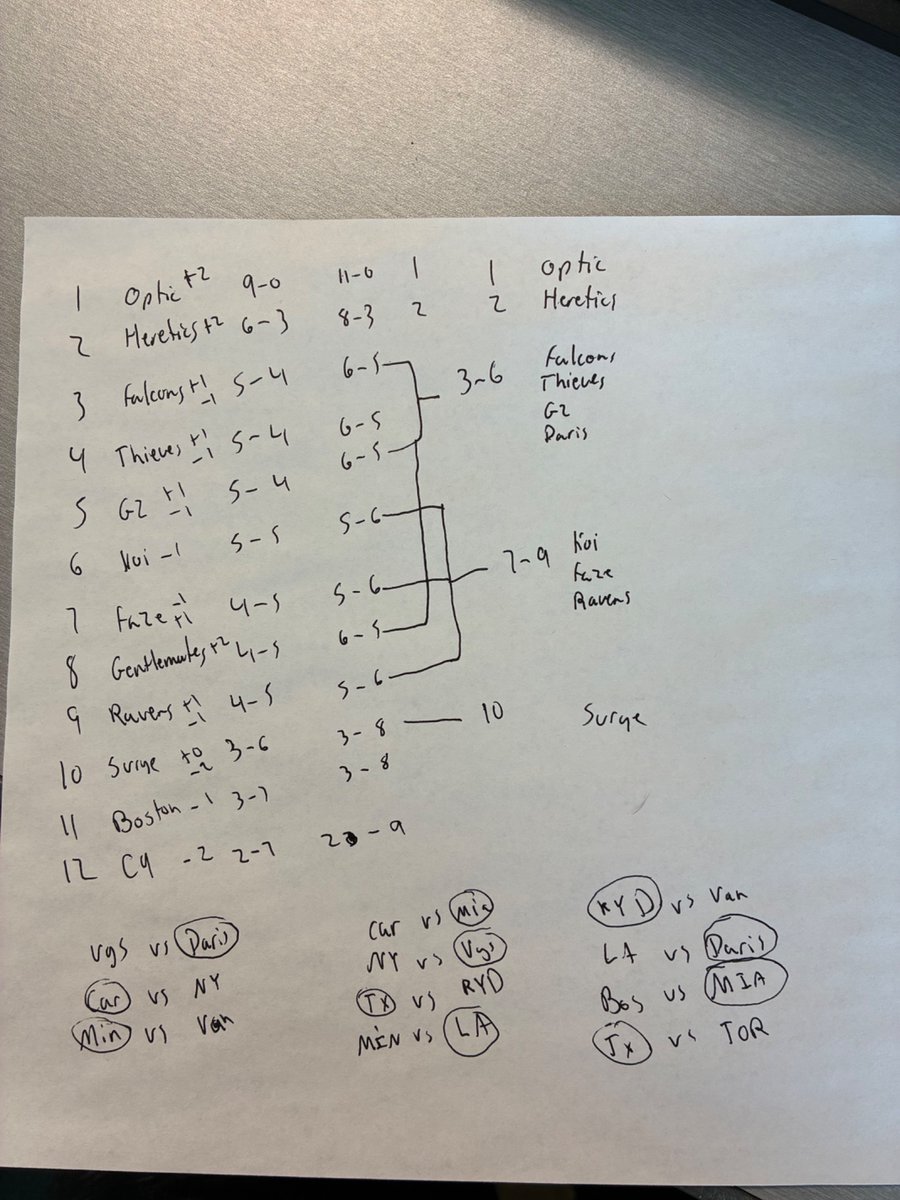 1 Optic +2 9-0 11-0 1 1 Optic
2 Heretics +2 6-3 8-3 2 2 Heretics
3 Falcons +1 -1 5-4 6-5 3-6 Falcons
Thieves
G2
Daris
4 Thieves +1 -1 5-4 6-5
5 G2 +1 -1 5-4 6-5
6 Koi -1 5-5 5-6
7 Faze -1 +1 4-5 5-6 7-9 Koi
Faze
Ravens
8 Gentlemates +2 4-5 6-5
9 Ravens +1 -1 4-5 5-6
10 Surge +0 -2 3-6 3-8 10 Surge
11 Boston -1 3-7 3-8
12 C9 -2 2-7 2-9
Vgs vs Daris
Car vs NY
Min vs Van
Car vs Mia
NY vs Vgs
Tx vs RYD
MIN vs LA
RYD vs Van
LA vs Daris
Bos vs MIA
Tx vs TOR